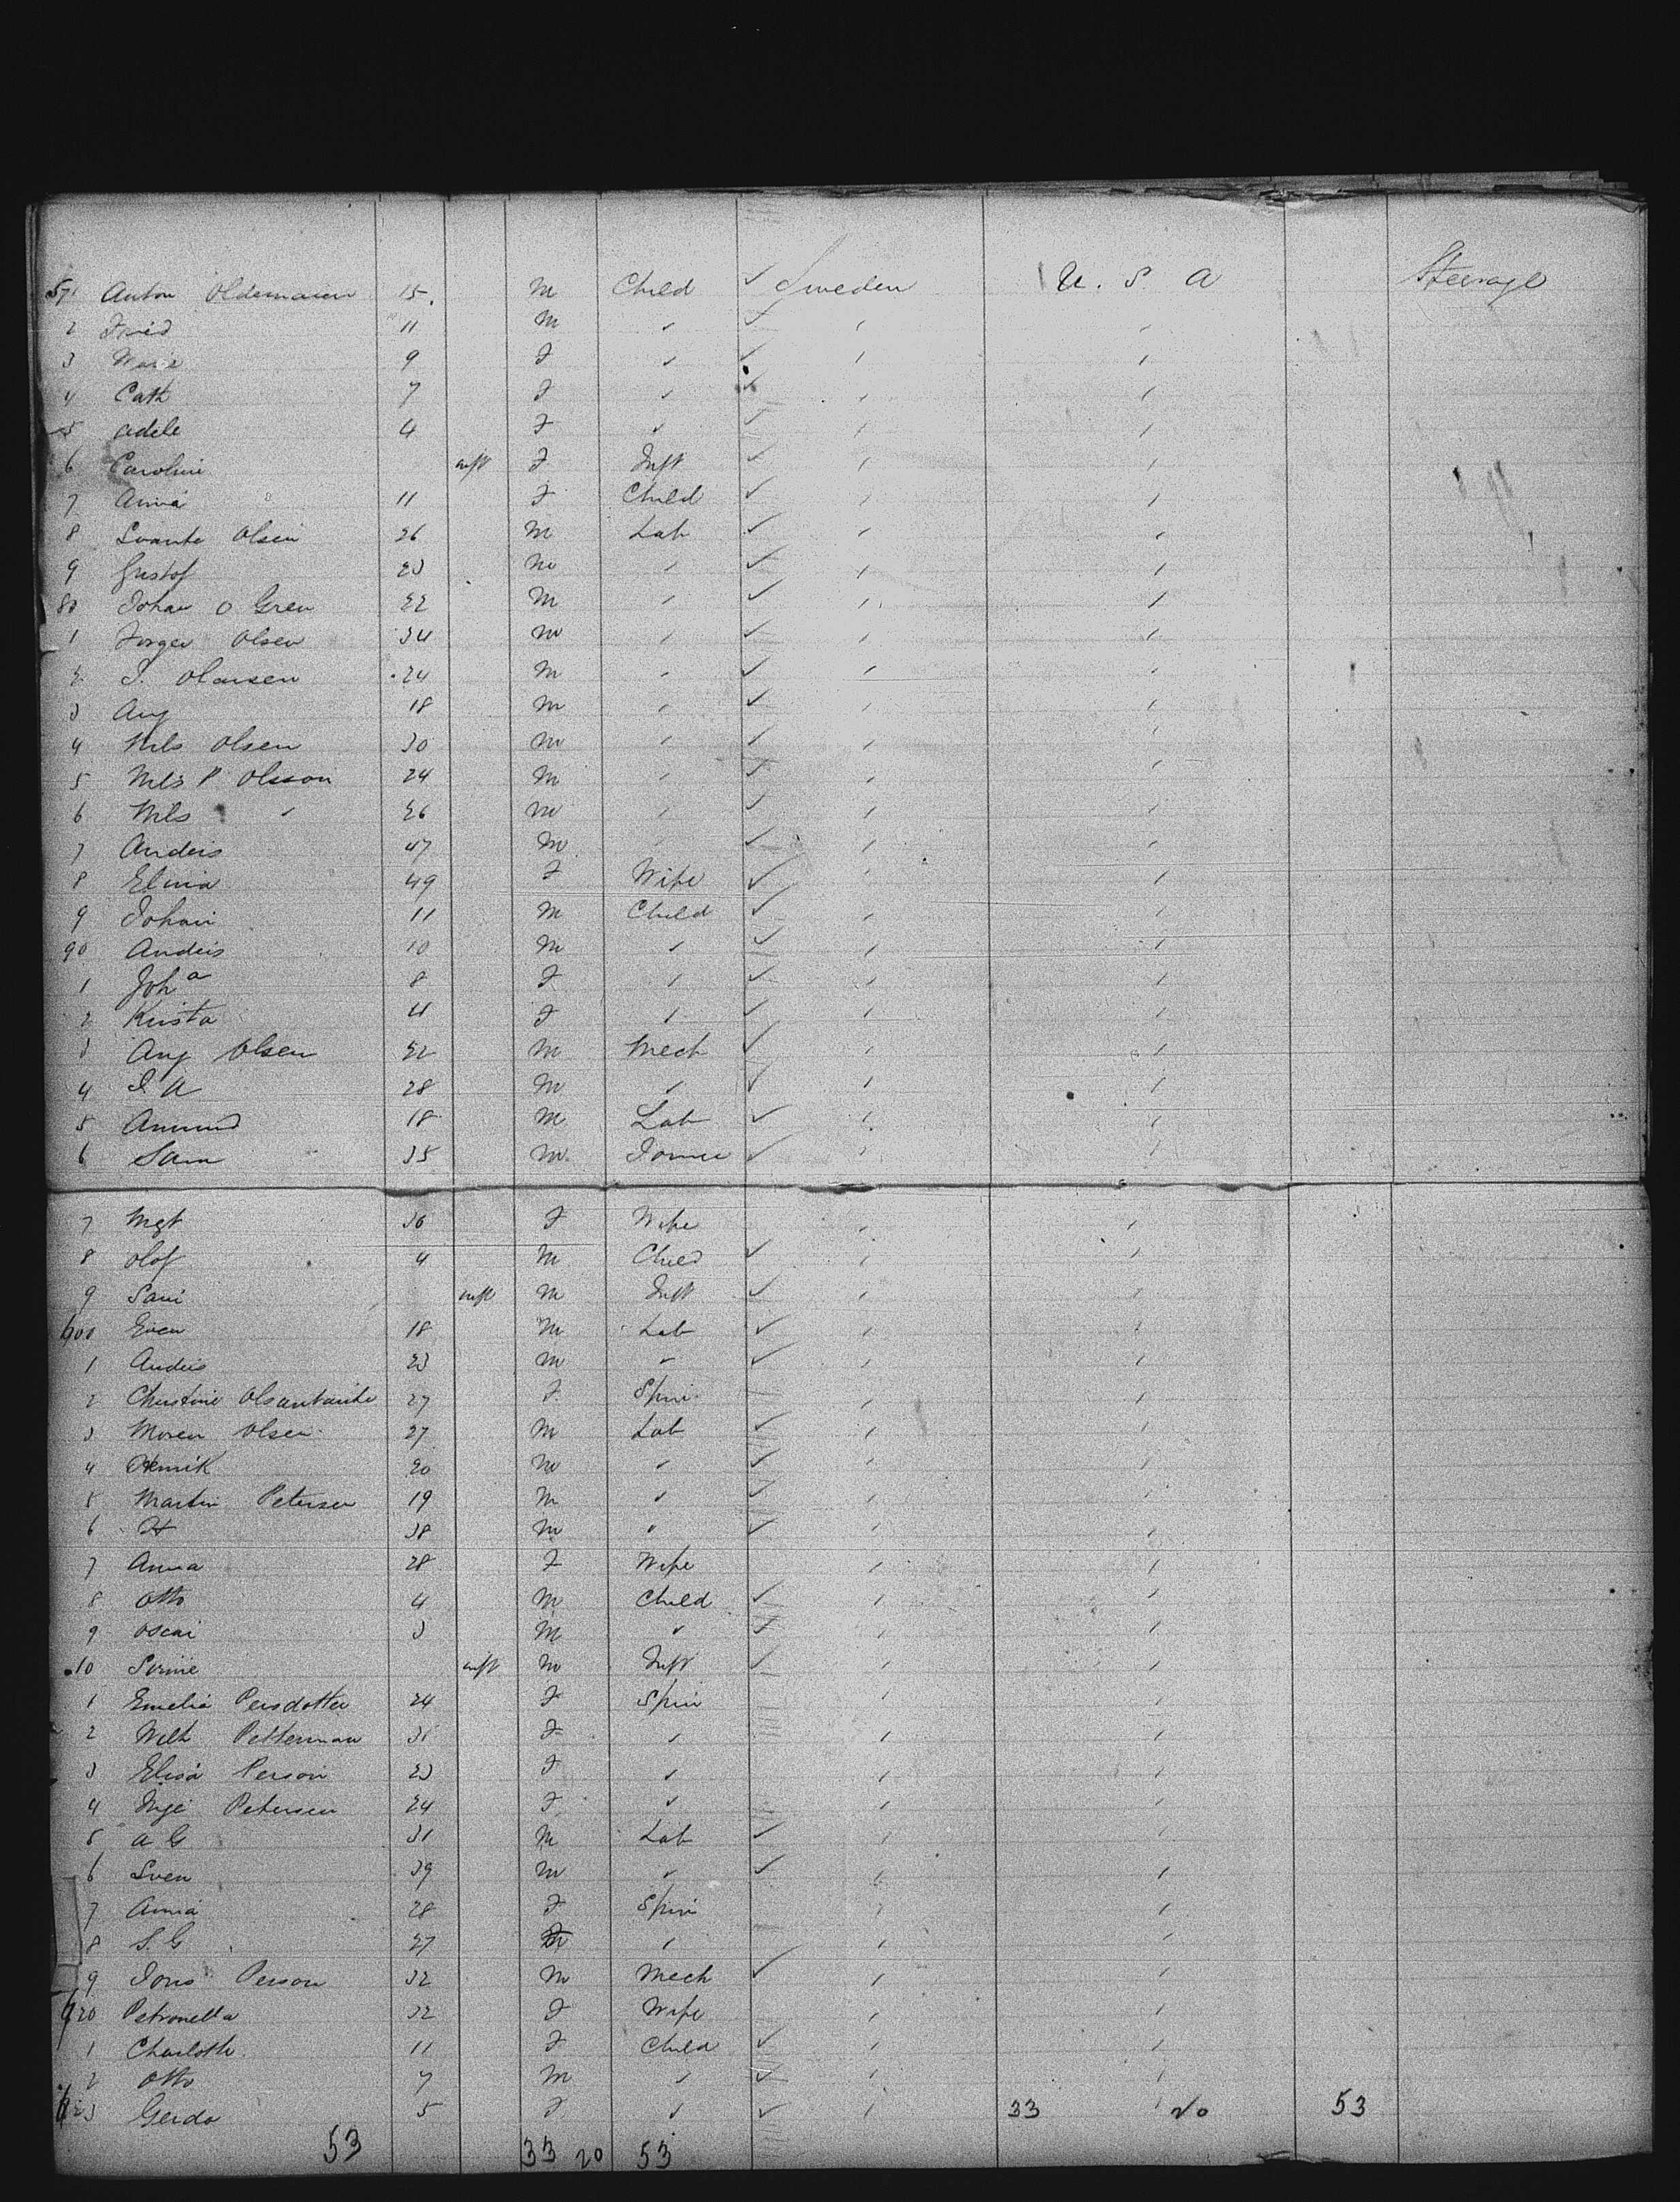 571 Anton Oldemaien 15 M Child ✓ Sweden U. S. A Steerage
2 Fried 11 M ✓
3 Marie 9 F ✓
4 Cath 7 F ✓
5 Adele 4 F ✓
6 Caroline inft F Inft ✓
7 Anna 11 F Child ✓
8 Svante Olsen 26 M Lab ✓
9 Gustof 23 M ✓
80 Johan O Gren 22 M ✓
1 Jorgen Olsen 34 M ✓
2 J. Olausen 24 M ✓
3 Aug 18 M ✓
4 Nils Olsen 30 M ✓
5 Nils P Olsson 24 M ✓
6 Nils 26 M ✓
7 Anders 47 M ✓
8 Elina 49 F Wife ✓
9 Johan 11 M Child ✓
90 Anders 10 M ✓
1 Joh a 8 F ✓
2 Krista 4 F ✓
3 Aug Olsen 22 M Mech ✓
4 J A 28 M ✓
5 Amund 18 M Lab ✓
6 Sam 35 M ✓
7 Mgt 36 F Wife
8 Olof 4 M Child ✓
9 inft M Inft ✓
600 Sven 18 M Lab ✓
1 Anders 23 M ✓
2 Christine 27 F Spin
3 Moren Olsen 27 M Lab ✓
4 Henrik 20 M ✓
5 Martin Petersen 19 M ✓
6 H 38 M ✓
7 Anna 28 F Wife
8 Otto 4 M Child ✓
9 Oscar 3 M ✓
10 inft M Inft ✓
1 Emelia Persdotter 24 F Spin
2 Wilh Petterman 31 F
3 Elisa Person 23 F
4 Inge Petersen 24 F
5 A G 31 M Lab ✓
6 Sven 39 M ✓
7 Anna 28 F Spin
8 S. G 27
9 Jons Person 32 M Mech ✓
620 Petronella 32 F Wife
1 Charloth 11 F Child ✓
2 Otto 7 M ✓
623 Gerda 5 F ✓ 33 20 53
53 33 20 53